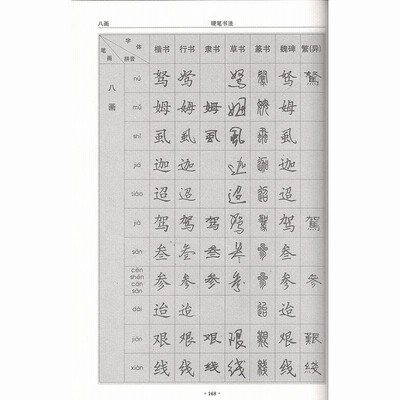 八画 硬笔书法
字体 笔画 拼音 楷书 行书 隶书 草书 篆书 魏碑 繁(异)
八画
nú 驽 驽 驽 驽 驽 駑
mǔ 姆 姆 姆 姆 姆 姆
shī 虱 虱 虱 虱 虱 虱
jiā 迦 迦 迦 迦 迦
tiáo 迢 迢 迢 迢 迢
jià 驾 驾 驾 驾 驾 驾 駕
sān 叁 叁 叁 叁 叁 叁
cēn shēn cān sān 参 参 参 参 参 参 參
dài 迨 迨 迨 迨
jiān 艰 艰 艰 艰 艰 艰 艱
xiàn 线 线 线 线 线 线 綫
· 168 ·